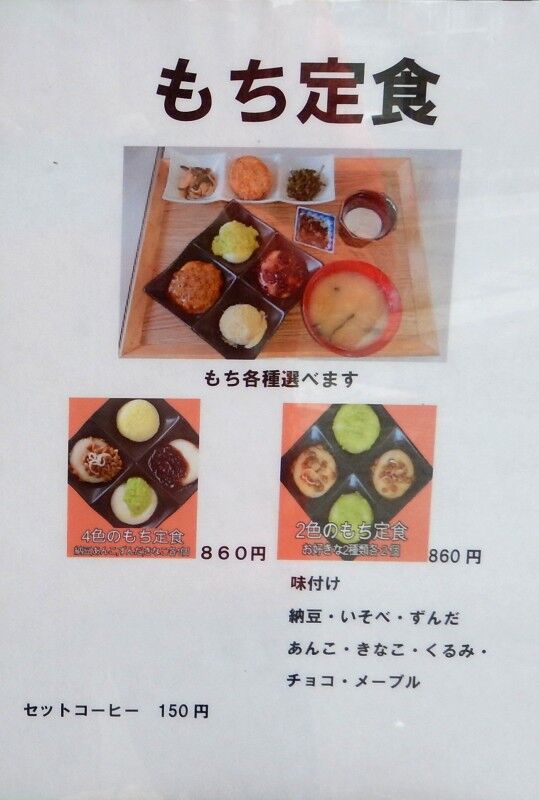 もち定食
もち各種選べます
4色のもち定食
納豆あんこずんだきなこ各1個
860円
2色のもち定食
お好きな2種類各2個
860円
味付け
納豆・いそべ・ずんだ
あんこ・きなこ・くるみ・
チョコ・メープル
セットコーヒー 150円